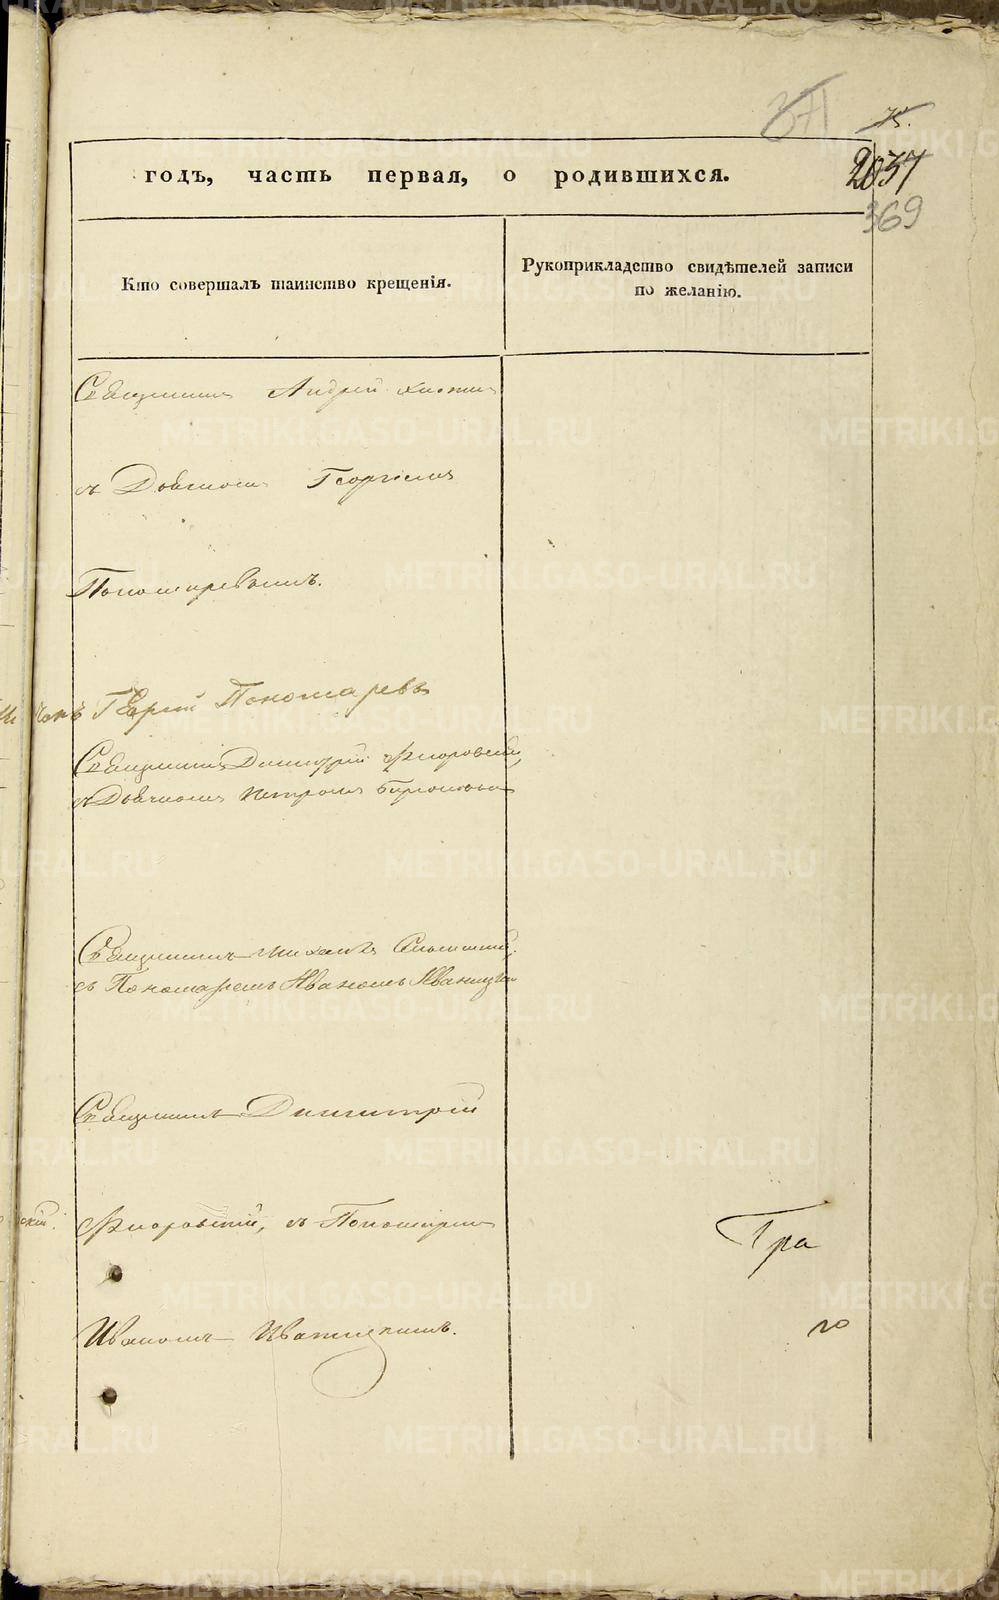 75.
371
годъ, часть первая, о родившихся.
2037
369
Кто совершалъ таинство крещенія.
Рукоприкладство свидѣтелей записи
по желанію.
Священникъ Андрей
съ Дьячкомъ Георгіемъ
Пономаревымъ.
Георгій Пономаревъ
Священникъ Димитрій Флоровскій
съ Дьячкомъ Петромъ
Священникъ Михаилъ
съ Пономаремъ Иваномъ Иваницкимъ
Священникъ Димитрій
скій. Флоровскій, съ Пономаремъ
Тра
Иваномъ Иваницкимъ.
го
METRIKI.GASO-URAL.RU